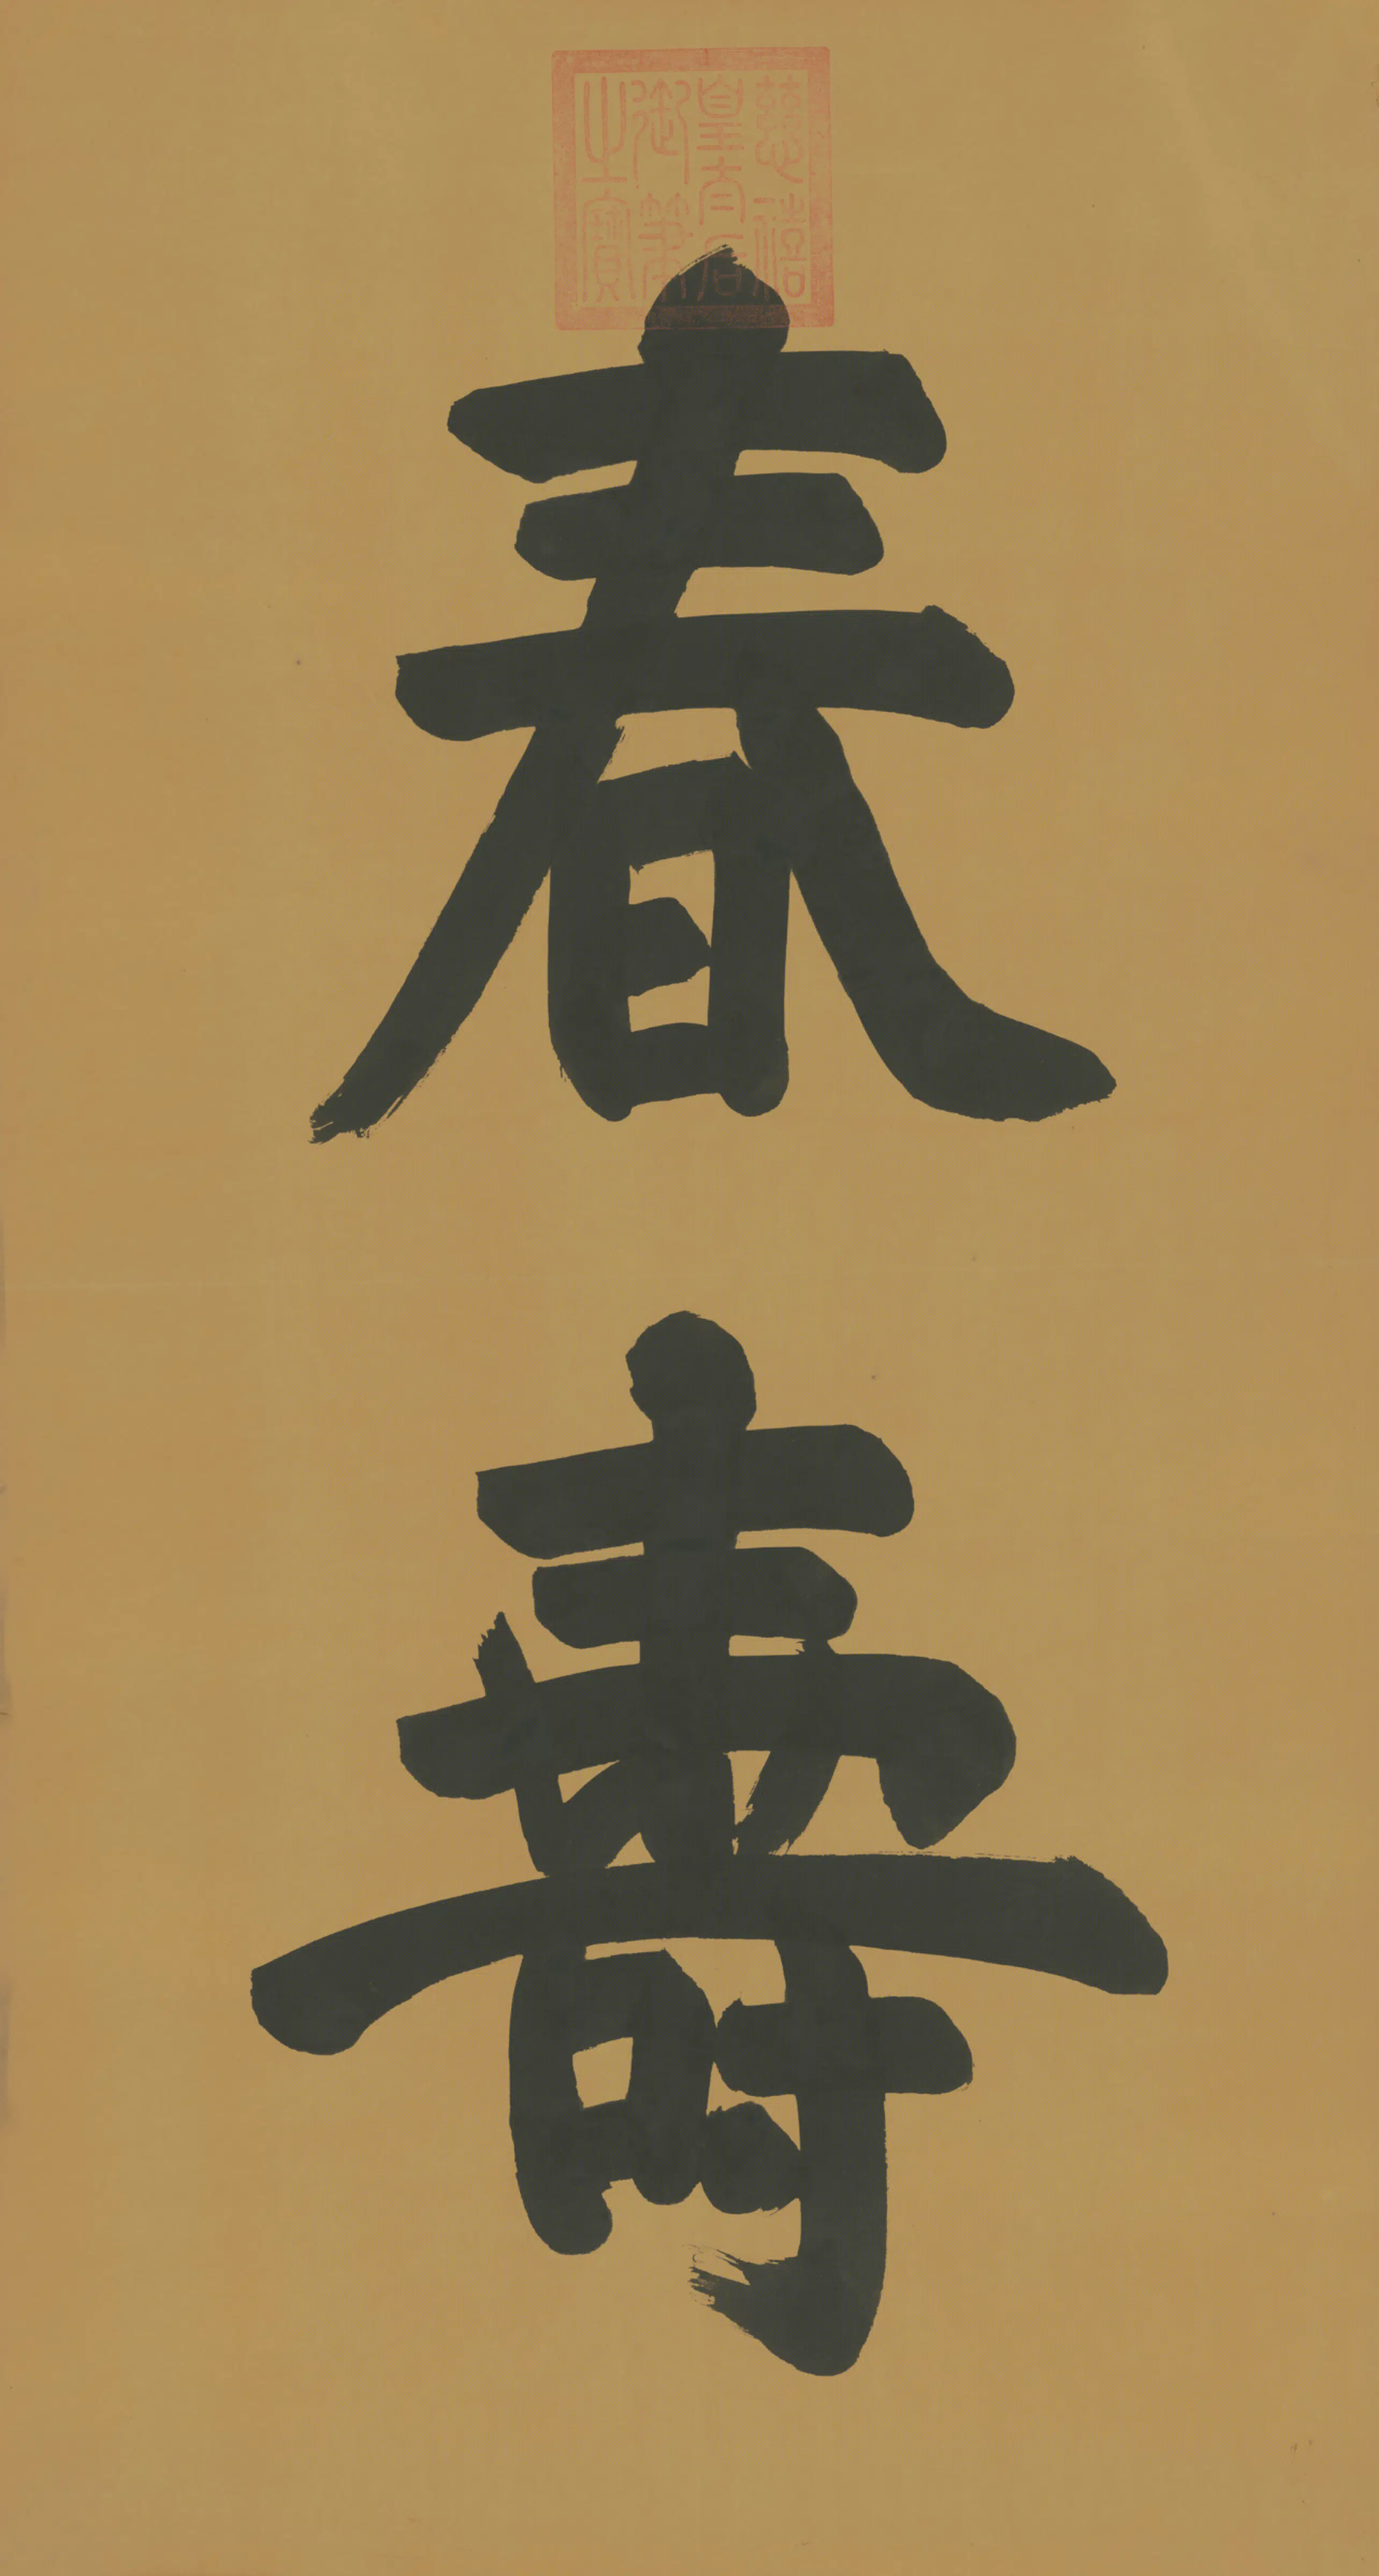 慈禧
皇太后
御筆
之寶
春
壽